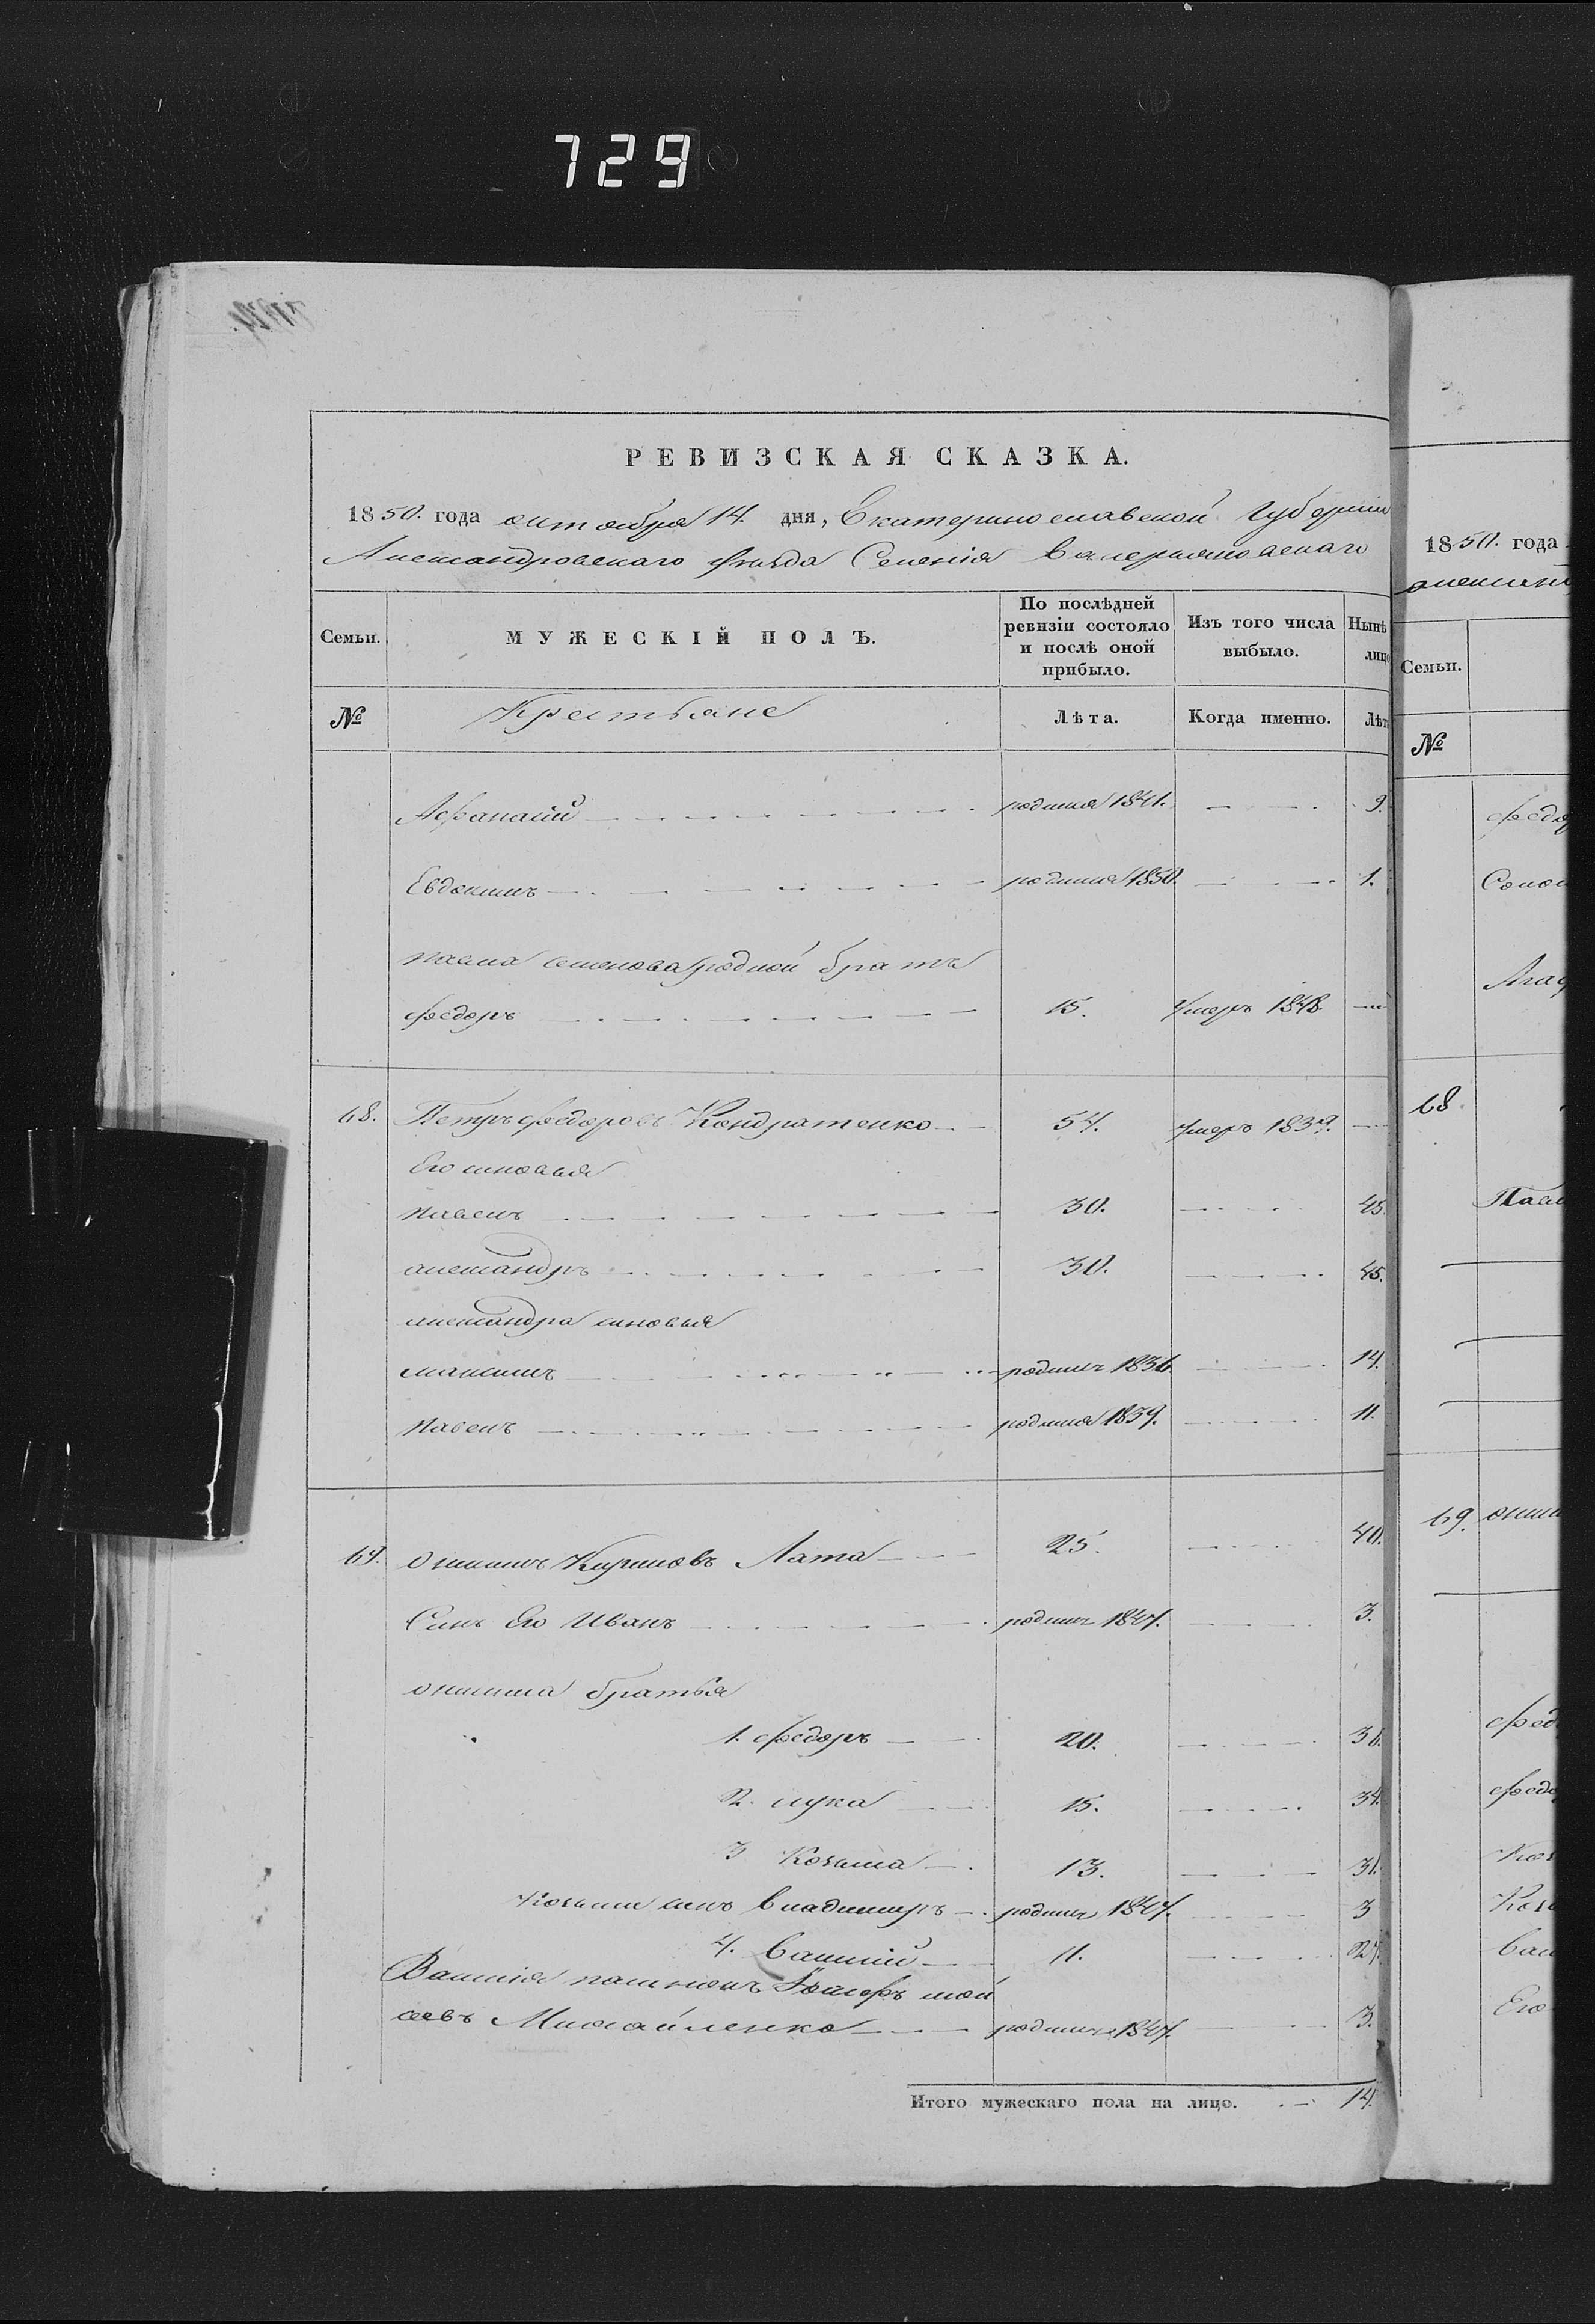 729
РЕВИЗСКАЯ СКАЗКА.
1850. года октября 14. дня, Екатеринославской Губерніи
Александровскаго Уѣзда Селенія Валерьяновскаго
Семьи.
МУЖЕСКІЙ ПОЛЪ.
По послѣдней ревизіи состояло и послѣ оной прибыло.
Изъ того числа выбыло.
Нынѣ лицо
№ Крестьяне Лѣта. Когда именно. Лѣт
Афанасій родился 1841. 9.
Евдокимъ родился 1850. 1.
Павла Семенова родной братъ
Федоръ 15. Умеръ 1848.
68. Петръ Федоровъ Кондратенко 54. умеръ 1839.
Его сыновья
Павелъ 30. 45.
александръ 30. 45.
александра сыновья
максимъ родился 1836 14.
Павелъ родился 1839. 11.
69. онисимъ Кириловъ Лата 25. 40.
Сынъ Его Иванъ родился 1847. 3.
онисима братья
1. федоръ 20. 36.
2. лука 15. 34.
3 Козьма 13. 31.
Козьми сынъ Владимиръ родился 1847. 3
4. Василій 11. 27.
Василія пасынокъ Іосифъ мой
сеевъ Михайленко родился 1847. 3.
Итого мужескаго пола на лицо. 14.
1850. года
Семьи.
№
68.
69.
Его